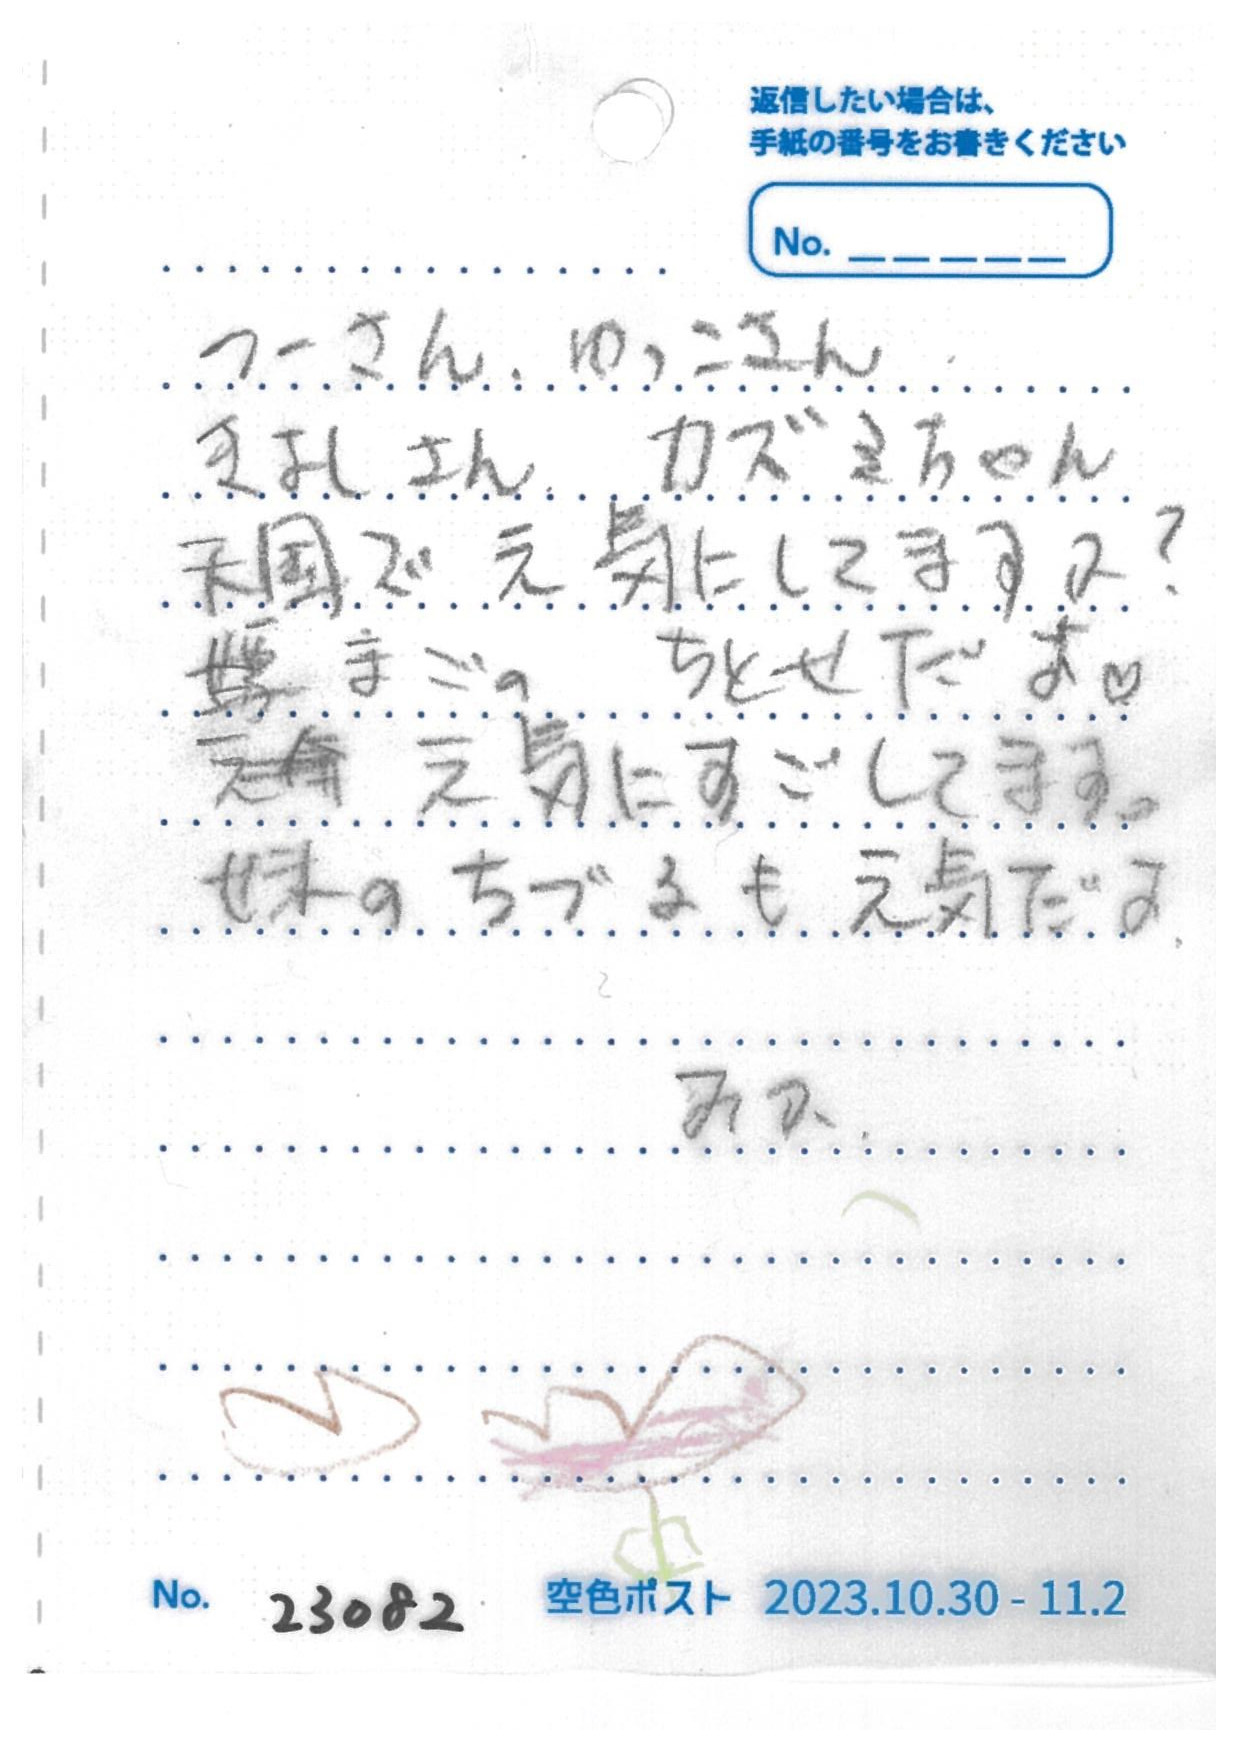 返信したい場合は、
手紙の番号をお書きください
No. _ _ _ _ _
つーさん、ゆっこさん
きよしさん カズえちゃん
天国で元気にしてますか?
まごの ちとせだよ♡
元気にすごしてます。
妹のちづるも元気だよ
No. 23082
空色ポスト 2023.10.30 - 11.2